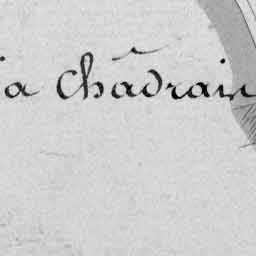 ia Châdrain